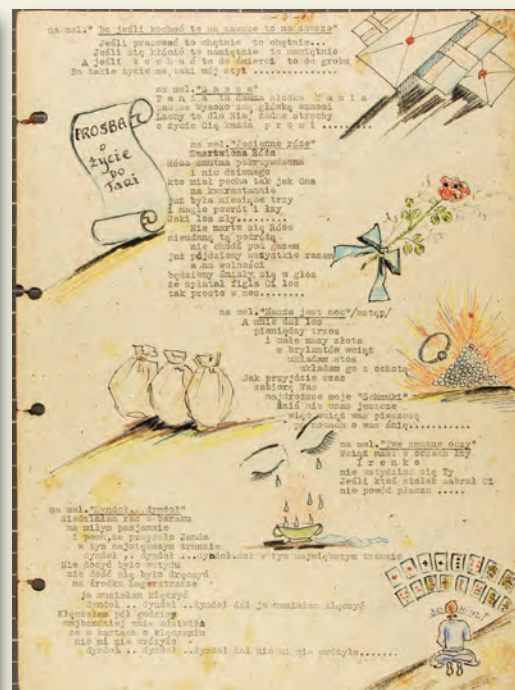 na mel." Bo jeśli kochać to na zawsze to na zawsze"
Jeśli pracować to chętnie to chętnie...
Jeśli się kłócić to namiętnie to namiętnie
A jeśli k o c h a ć to do śmierci to do grobu
Bo takie życie ma taki mój styl ..............
PROSBA
o
życie
DO
Tani
na mel.
T a n i a to dumna słodka T a n i a
Zawsze wysoko swą główkę wznosi
Lachy to dla Niej żadne strachy
o życie Cię każda p r o s i .........
na mel."Jesienne róże"
Zmartwiona Róża
Róża smutna pokrzywdzona
i nic dziwnego
kto miał pecha tak jak Ona
na kwarantannie
już była miesiące trzy
i nagle powrót i łzy
Jaki los zły.........
Nie martw się Różo
nieudaną tą podróżą
nie chodź pod gazem
już pójdziemy wszystkie razem
a na wolności
będziemy śmiały się w głos
że spłatał figla Ci los
tak prosto w nos........
na mel."Nasza jest noc"/wstęp/
A mnie dał los
pieniędzy trzos
i całe masy złota
z brylantów wciąż
układam stos
układam go z ochotą
Jak przyjdzie czas
zabiorę Was
najdroższe moje "Schmuki"
dziś nie czas jeszcze
więc wciąż was pieszczę
po nocach o was śnię...........
na mel."Twe smutne oczy"
Wciąż masz w oczach łzy
I r e n k o
nie wstydzisz się Ty
Jeśli ktoś stołek zabrał Ci
nie powód płaczu .....
na mel."Dyndoł..dyndoł"
Siedziałam raz z baraku
na miłym pasjansie
i pech, że przyszła Janda
w tym największym transie
dyndoł .. dyndoł ..dyndoł.doł w tym największym transie
Nie dosyć było wstydu
nic dość się było dręczyć
na środku Lagerstrasse
ja musiałam klęczyć
dyndoł .. dyndoł ..dyndoł doł ja musiałam klęczyć
Klęczałam pół godziny
najbardziej mnie zdziwiło
że z kartach o klęczeniu
nic mi nie wróżyło
dyndoł .. dyndoł ..dyndoł doł nic mi nie wróżyło.......